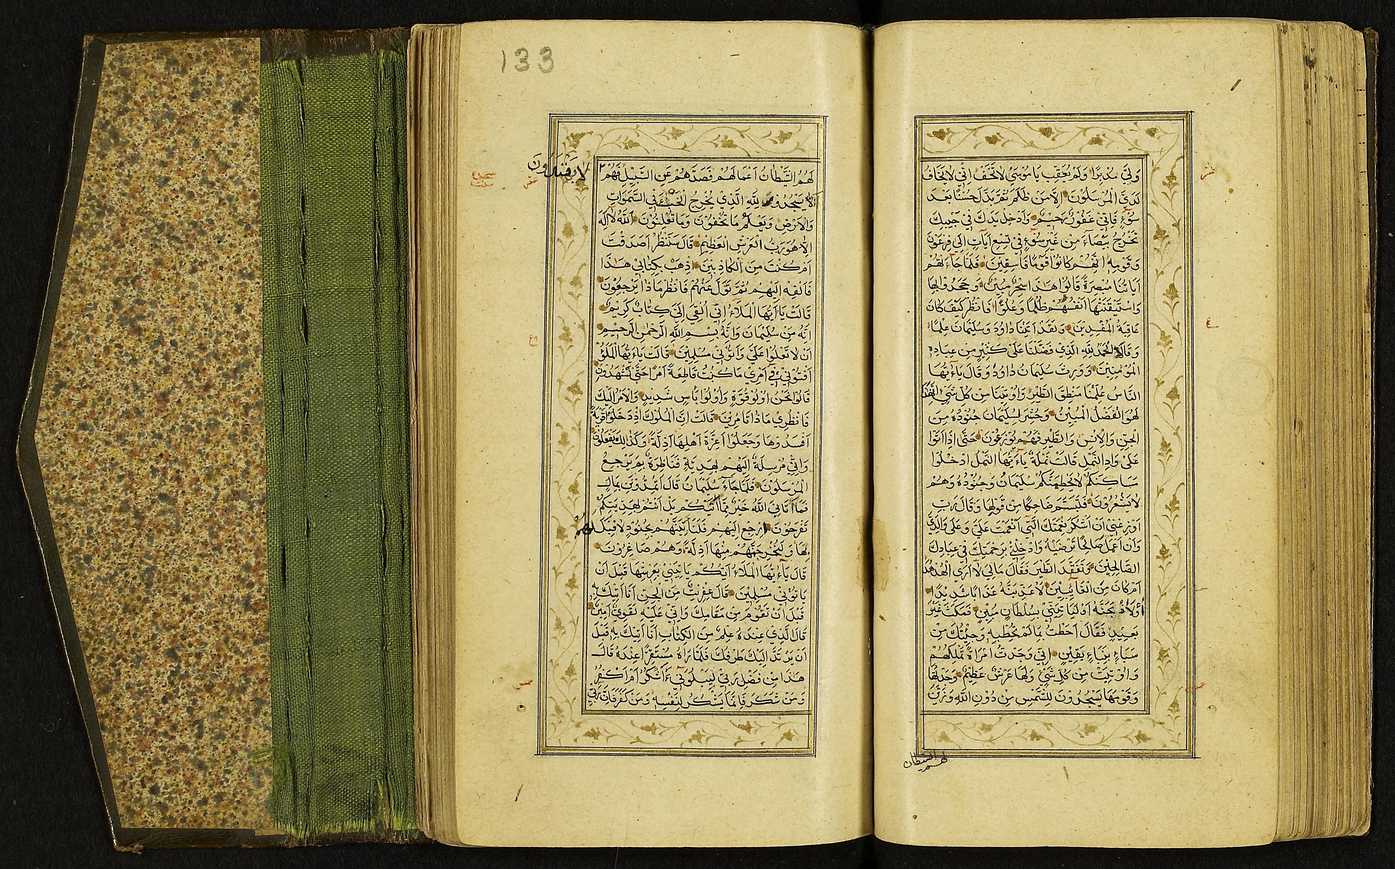 ولى مدبرا ولم يعقب يا موسى لا تخف انى لا يخاف
لدى المرسلون الا من ظلم ثم بدل حسنا بعد
سوء فانى غفور رحيم وادخل يدك فى جيبك
تخرج بيضاء من غير سوء فى تسع آيات الى فرعون
وقومه انهم كانوا قوما فاسقين فلما جاءتهم
آياتنا مبصرة قالوا هذا سحر مبين وجحدوا بها
واستيقنتها انفسهم ظلما وعلوا فانظر كيف كان
عاقبة المفسدين ولقد آتينا داود وسليمان علما
وقالا الحمد لله الذى فضلنا على كثير من عباده
المؤمنين وورث سليمان داود وقال ياءيها
الناس علمنا منطق الطير واوتينا من كل شئ ان هذا
لهو الفضل المبين وحشر لسليمان جنوده من
الجن والانس والطير فهم يوزعون حتى اذا اتوا
على واد النمل قالت نملة ياءيها النمل ادخلوا
مساكنكم لا يحطمنكم سليمان وجنوده وهم
لا يشعرون فتبسم ضاحكا من قولها وقال رب
اوزعنى ان اشكر نعمتك التى انعمت على وعلى والدى
وان اعمل صالحا ترضيه وادخلنى برحمتك فى عبادك
الصالحين وتفقد الطير فقال مالى لا ارى الهدهد
ام كان من الغائبين لاعذبنه عذابا شديدا
او لاذبحنه او ليأتينى بسلطان مبين فمكث غير
بعيد فقال احطت بما لم تحط به وجئتك من
سباء بنباء يقين انى وجدت امرأة تملكهم
واوتيت من كل شئ ولها عرش عظيم وجدتها
وقومها يسجدون للشمس من دون الله وزين
لهم الشيطان
133
لهم الشيطان اعمالهم فصدهم عن السبيل فهم
لا يهتدون
الا يسجدوا لله الذى يخرج الخبء فى السموات
والارض ويعلم ما تخفون وما تعلنون الله لا اله
الا هو رب العرش العظيم قال سننظر اصدقت
ام كنت من الكاذبين اذهب بكتابى هذا
فالقه اليهم ثم تول عنهم فانظر ماذا يرجعون
قالت ياايها الملاء انى القى الى كتاب كريم
انه من سليمان وانه بسم الله الرحمن الرحيم
ان لا تعلوا على وأتونى مسلمين قالت ياءيها الملؤ
افتونى فى امرى ما كنت قاطعة امرا حتى تشهدون
قالوا نحن اولوا قوة واولوا بأس شديد والامر اليك
فانظرى ماذا تأمرين قالت ان الملوك اذا دخلوا قرية
افسدوها وجعلوا اعزة اهلها اذلة وكذلك يفعلون
وانى مرسلة اليهم بهدية فناظرة بم يرجع
المرسلون فلما جاء سليمان قال اتمدونن بمال
فما آتانى الله خير مما آتيكم بل انتم بهديتكم
تفرحون ارجع اليهم فلنأتينهم بجنود لا قبل لهم
بها ولنخرجنهم منها اذلة وهم صاغرون
قال ياءيها الملاء ايكم يأتينى بعرشها قبل ان
يأتونى مسلمين قال عفريت من الجن انا آتيك به
قبل ان تقوم من مقامك وانى عليه لقوى امين
قال الذى عنده علم من الكتاب انا آتيك به قبل
ان يرتد اليك طرفك فلما رآه مستقرا عنده قال
هذا من فضل ربى ليبلونى ءاشكر ام اكفر
ومن شكر فانما يشكر لنفسه ومن كفر فان ربى